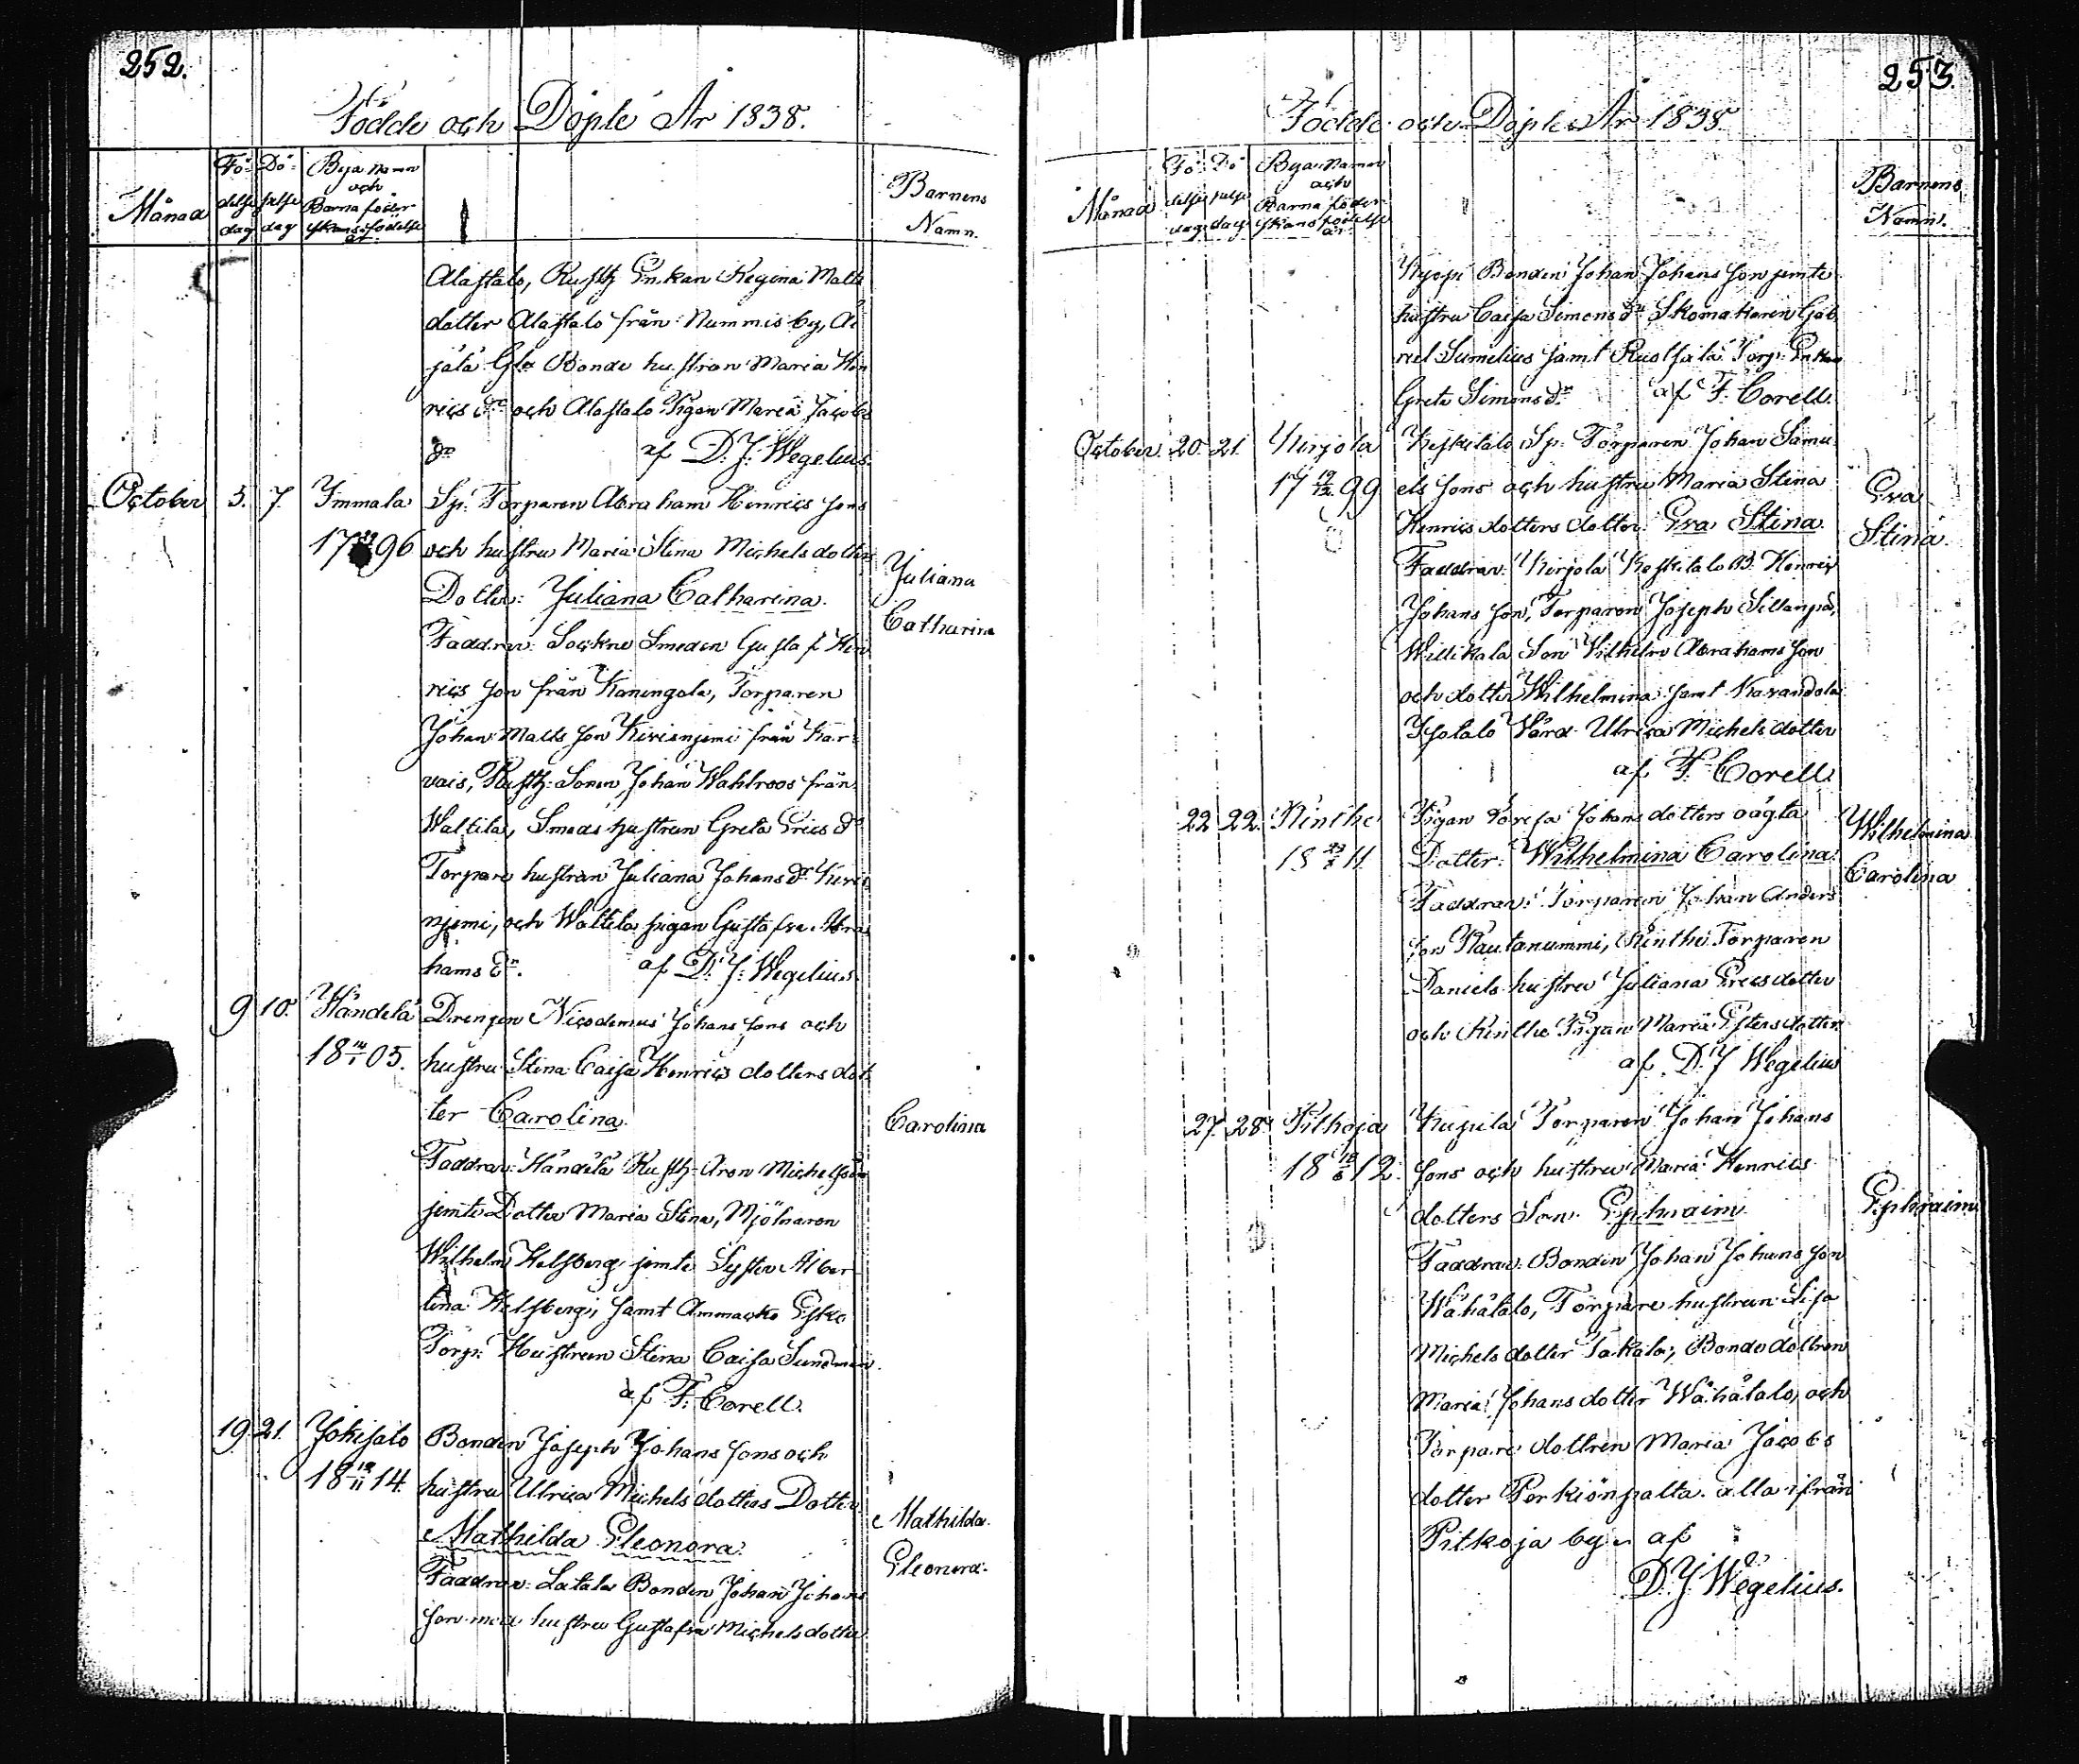 252.
Födde och Döpte År 1838.
Månad
Fö-
delse
dag
Dö-
pelse
dag
Bya Namn
och
Barna föder
skans födelse
år
Barnens
Namn.
Alastalo, Rusth. Enkan Regina Matts
dotter Alastalo från Nummis by, Äi
jälä Gla Bonde hustrun Maria Hen
rics dr och Alastalo Pigan Maria Jacobs
dr af D. J. Wegelius.
October 5. 7. Immala Sp. Torparen Abraham Henrics sons
17 96 och hustru Maria Stina Michels dotters
Dotter: Juliana Catharina.
Juliana
Catharina
Faddrar: Sockne Smeden Gustaf Hen
rics son från Kaningola, Torparen
Johan Matts son Kivisnjemi från Kar-
vais, Rusth. Sonen Johan Wahlroos från
Waltila, Smeds hustrun Greta Erics dr
Torpare hustrun Juliana Johans dr Kivis
njemi, och Waltila pigan Gustafva Abra
hams dr. af D. J. Wegelius.
9 10. Händelä Drengen Nicodemus Johans sons och
18 05. hustru Stina Caisa Henrics dotters dot
ter Carolina.
Carolina
Faddrar: Händelä Rusth. Aron Michelsson
jemte Dotter Maria Stina, Mjölnaren
Wilhelm Helsberg jemte Syster Alber
tina Helsberg, samt Ammacko Esko
Torp. Hustrun Stina Caisa Sundman.
af F. Corell.
19. 21. Jokisalo Bonden Joseph Johans sons och
18 14. hustru Ulrica Michels dotters Dotter
Mathilda Eleonora.
Mathilda
Eleonora.
Faddrar: Latala Bonden Johan Johans
son med hustru Gustafva Michels dotter
253.
Födde och Döpte År 1838.
Månad
Fö-
delse
dag
Dö
pelse
dag
Bya Namn
och
Barna föder
skans födelse
år
Barnens
Namn.
Bonden Johan Johans son jemte
hustru Caisa Simons dr Skomakaren Gab
riel Sumelius samt Torp. Enkan
Greta Simons dr. af F. Corell.
October. 20. 21. Kirjola Keskitalo Sp. Torparen Johan Samu
17 19/12 99 els sons och hustru Maria Stina
Henrics dotters dotter Eva Stina.
Eva
Stina.
Faddrar: Kirjola Keskitalo B. Henric
Johans son, Torparen Joseph Sillanpä,
Willikala Son Vilhelm Abrahams son
och dotter Wilhelmina samt Kavandola
Isotalo Värd. Ulrica Michels dotter
af F. Corell
22 22. Rinthe Pigan Johans dotters oägta
18 11. Dotter: Wilhelmina Carolina.
Wilhelmina
Carolina
Faddrar: Torparen Johan Anders
son Rautanummi, Rinthe Torparen
Daniels hustru Juliana Erics dotter
och Rinthe Pigan Maria dotter
af D. J Wegelius
27. 28. Pitkoja Torparen Johan Johans
18 12. sons och hustru Maria Henrics
dotters Son Ephraim
Ephraim
Faddrar: Bonden Johan Johans son
Wähätalo, Torpare hustrun Lisa
Michels dotter Takala, Bonde dottren
Maria Johans dotter Wähätalo, och
Torpare dottren Maria Jacobs
dotter Perkiönpalta. alla ifrån
Pitkoja by. af
D. J. Wegelius.